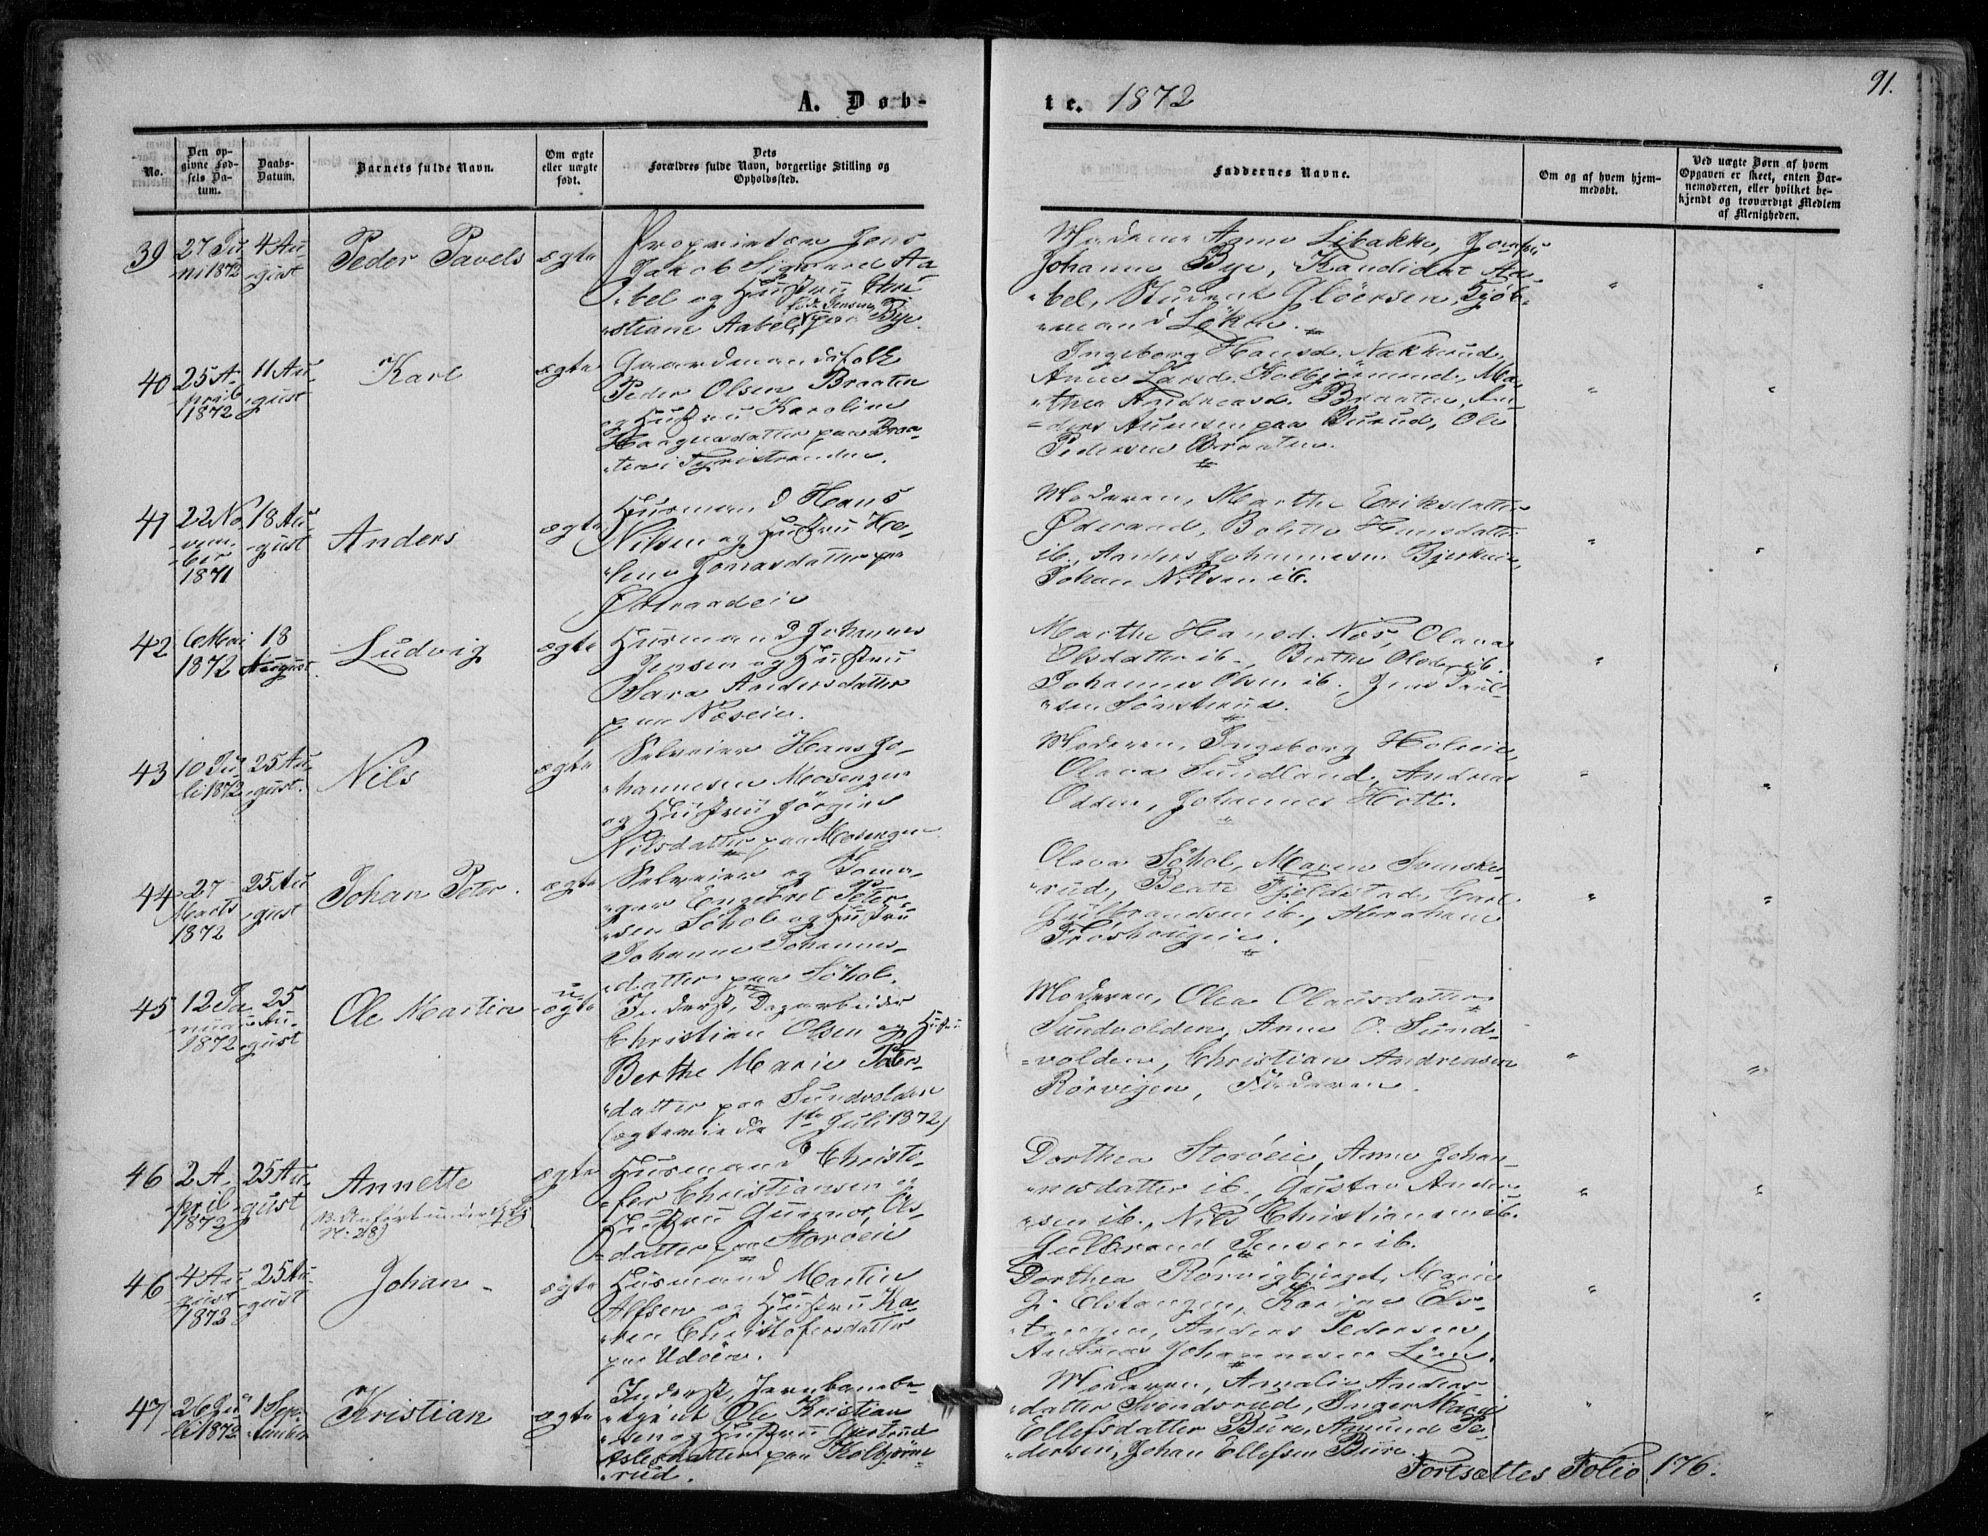 A. Døb-
te. 1872
91.
No.
Den opgivne Fødsels Datum.
Daabs-Datum.
Barnets fulde Navn.
Om ægte eller uægte født.
Dets Forældres fulde Navn, borgerlige Stilling og Opholdssted.
Faddernes Navne.
Om og af hvem hjemmedøbt.
Ved uægte Børn af hvem Opgaven er skeet, enten Barnemoderen, eller hvilket bekjendt og troværdigt Medlem af Menigheden.
39
27 Juni 1872
4 August
Peder Pavels
ægte
Proprietær Jens
Jakob Sigvard Aa-
bel og Hustru Chri-
stiane Aabel, f. Jensen paa Bye.
Moderen Anne Libakke, Jomfru
Johanne Bye, Kandidat Aa-
bel, Student Gløersen, Kjøb-
mand Løken.
40
25 April 1872
11 August
Karl
ægte
Gaardmandsfolk
Peder Olsen Braaten
og Hustru Karoline
Haagensdatter paa Braa-
ten i Tyristranden.
Ingeborg Hansd. Nakkerud,
Anne Larsd. Kolbjørnrud, Ma-
thea Andreasd. Braaten, An-
ders paa Burud, Ole
Pedersen Braaten.
41
22 November 1871
18 August
Anders
ægte
Husmand Hans
Nilsen og Hustru He-
lene Jonasdatter paa
Øderaadeie
Moderen, Marthe Eriksdatter
Øderaad, Bolette Hansdatter
ib., Anders Johannesen Bjerkeeie,
Johan Nilsen ib.
42
6 Mai 1872
18 August.
Ludvig
ægte
Husmand Johannes
Jensen og Hustru
Sara Andersdatter
paa Næseie.
Marthe Hansd. Næs, Olava
Olsdatter ib., Berthe Olsd. ib.
Johannes Olsen ib., Jens Paul-
sen Sønsterud.
43
10 Juli 1872
25 August.
Nils
ægte
Selveier Hans Jo-
hannesen Mosengen
og Hustru Jørgine
Nilsdatter paa Mosengen
Moderen, Ingeborg Holeie,
Olava Sundland, Andreas
Odden, Johannes Hotte.
44
27 Marts 1872
25 August
Johan Peter.
ægte
Selveier og Forma-
ger Engebret Peter-
sen Søhol og Hustru
Johanne Johannes-
datter paa Søhol.
Olava Søhol, Maren Svenske-
rud, Beate Fjeldstad, Carl
Gulbrandsen ib., Abraham
Frøshaugeie.
45
12 Januar 1872
25 August
Ole Martin
uægte
Inderst, Dagarbeider
Christian Olsen og Hustru
Berthe Marie Peter-
datter paa Sundvolden
(ægteviede 1ste Juli 1872)
Moderen, Olea Olausdatter
Sundvolden, Anne O. Sund-
volden, Christian Andreasen
Rørvigen, Faderen.
46
2 April 1872
25 August
Annette
N. 28)
ægte
Husmand Christo-
fer Christiansen og
Hustru Gunnor Ols-
datter paa Storøeie
Dorthea Storøeie, Anne Johan-
nesdatter ib., Gustav Ander-
sen ib., Nils Christiansen ib.
Gulbrand Jensen ib.
46
4 August 1872
25 August
Johan
ægte
Husmand Martin
Alfsen og Hustru Ka-
ren Christofersdatter
paa Udøen.
Dorthea Rørvigbjerget, Marie
J. Elstangen, Karine Els-
tangen, Anders Pedersen,
Andreas Johannesen Lien.
47
26 Juli 1872
1 September
Kristian
ægte
Inderst, Jernbanebe-
tjent Ole Kristian-
sen og Hustru Gurtrud
Aslesdatter paa Kolbjørn-
rud.
Moderen, Amalie Anders-
datter Svendsrud, Inger Marie
Ellefsdatter Bure, Amund Pe-
dersen, Johan Ellefsen Bure.
Fortsættes Folio 176.